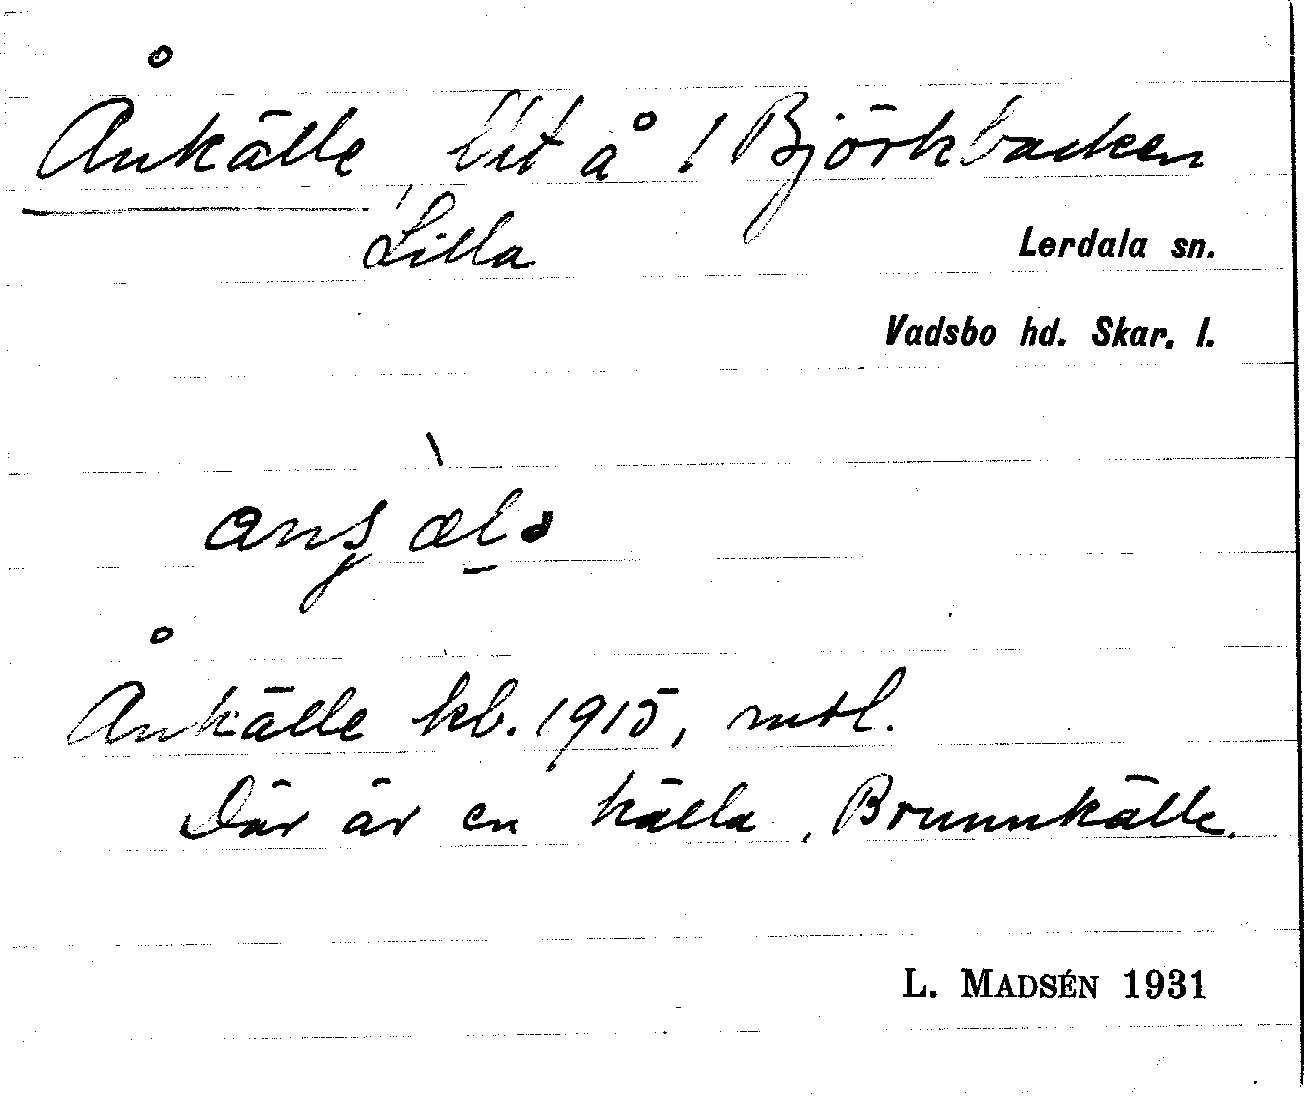 Ånkälle, lit å 1 Björkbacken
Lilla
Lerdala sn.
Vadsbo hd. Skar. l.
Ånkälle kb. 1915, mtl.
Där är en källa, Brunnkälle.
L. MADSÉN 1931